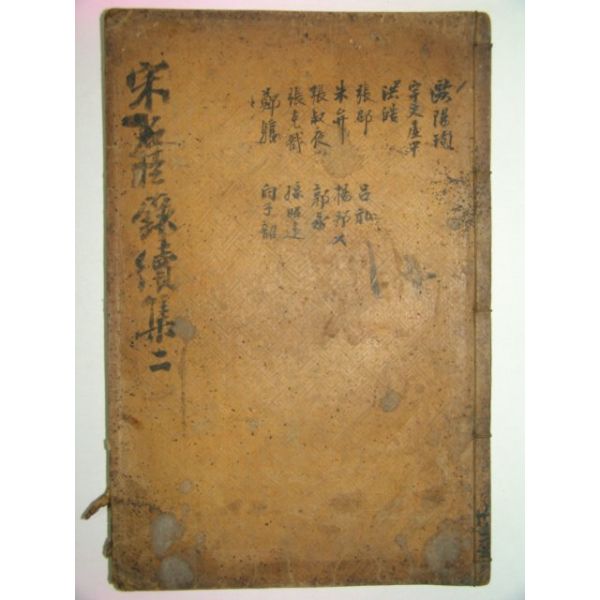 歐陽珣
宇文虛中
洪皓
張邵 呂祉
朱弁 楊邦乂
張叔夜 郭
張克戩 孫昭遠
鄭驤 向子韶
宋 錄續集二